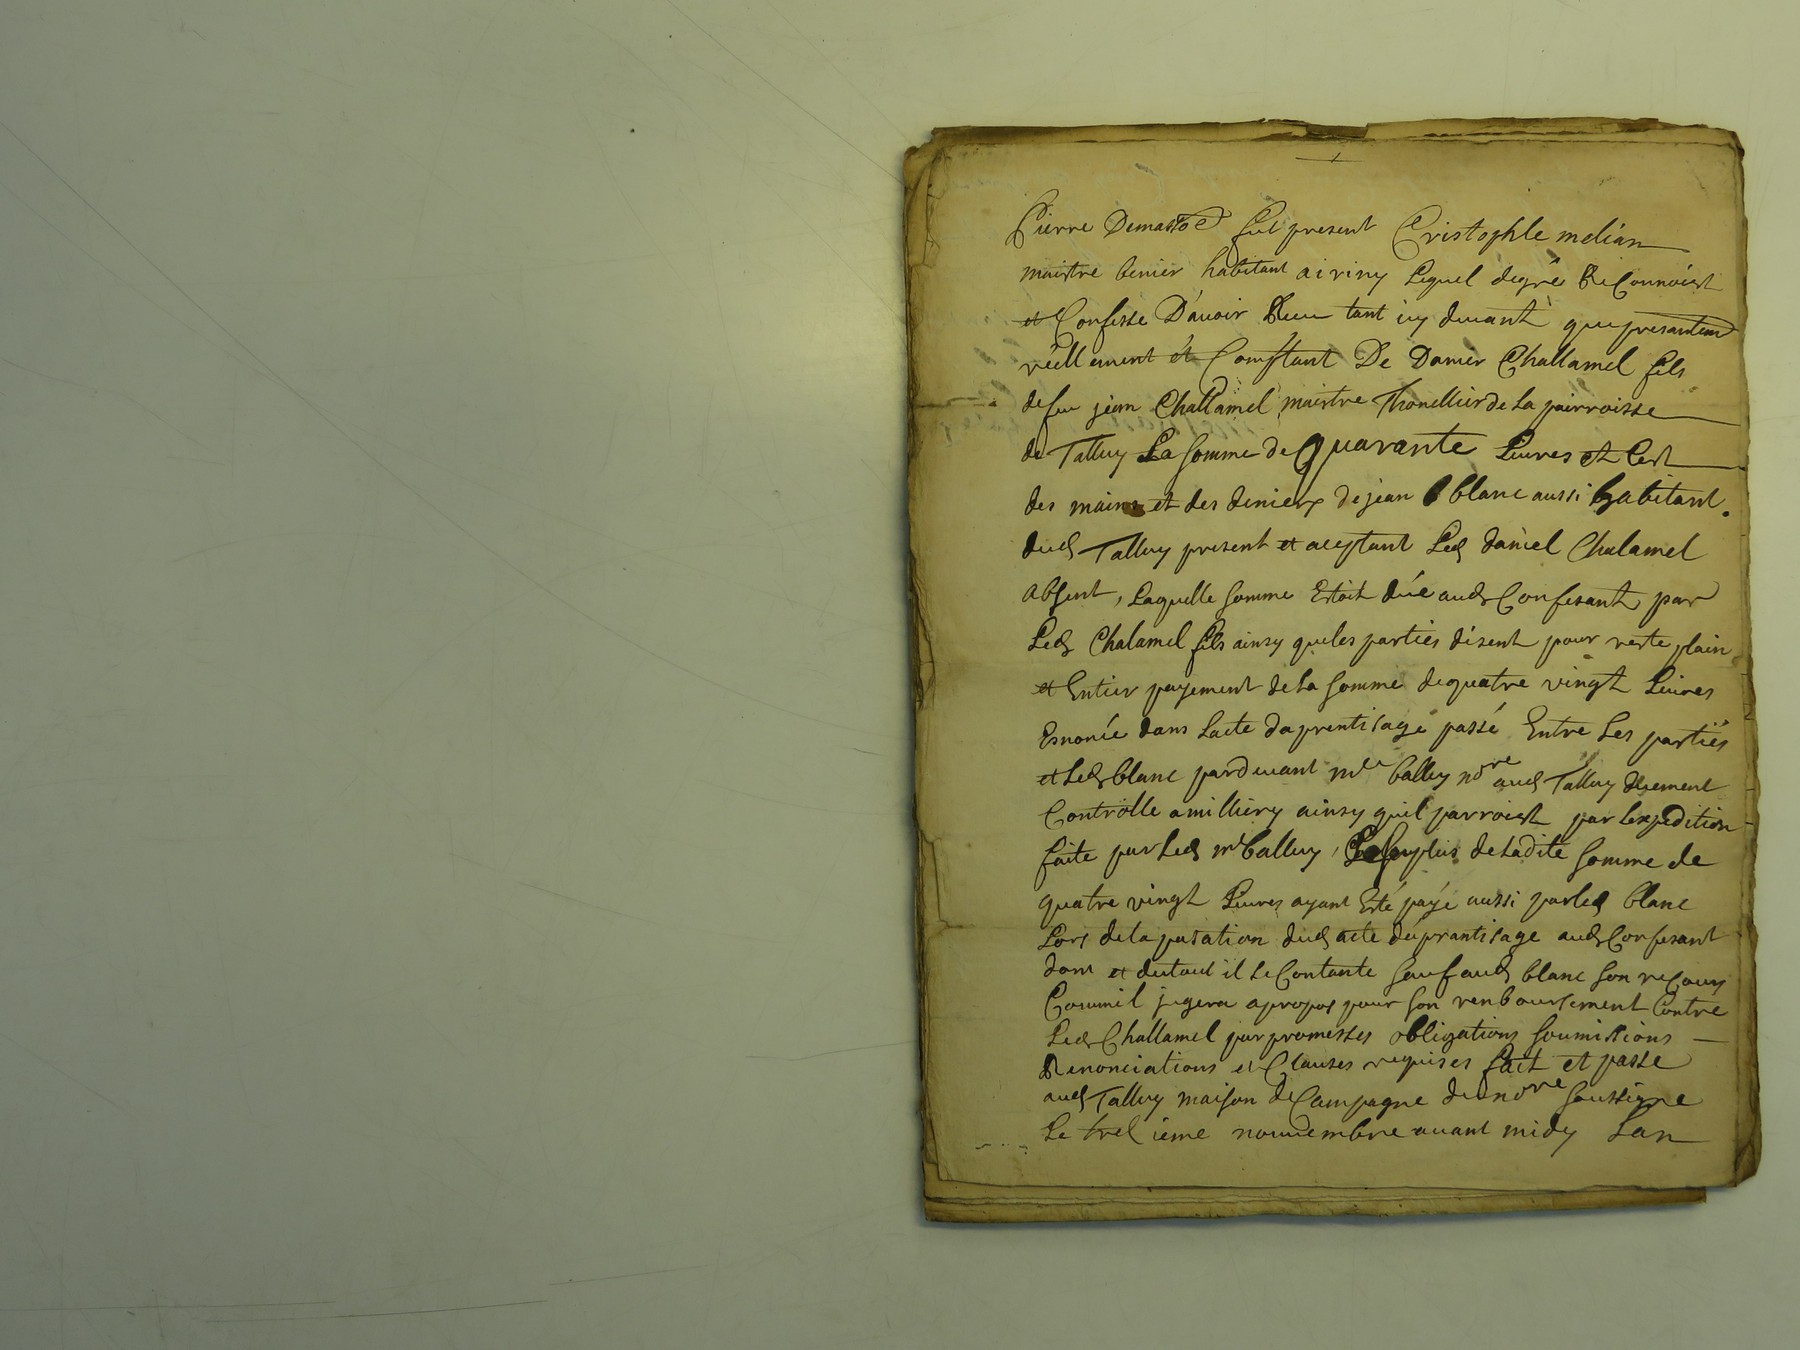 Pierre Demasso fut present Cristophle melian
maistre benier habitant a iriny Lequel degré ReConnoist
et Confesse D'auoir Reeu tant icy deuant que presantem
réellement et Comstant De Danier Challamel fils
de feu jean Challamel maistre Thonellier de La pairroisse
de Talluy La somme de Quarante Liures et Cest
des mains et des deniers de jean blanc aussi habitant
dud Talluy present et aceptant Led daniel Chalamel
absent, Laquelle somme Estoit düe aud Confesant par
Led Chalamel fils ainsy que les parties disent pour reste plain
et Entier payement de La somme de quatre vingt Liures
Esnonée dans Lacte daprentisage passé Entre Les parties
et Led blanc pardeuant me balley nore aud Talluy Duement
Controlle a milliery ainsy quil parroist par lexpedition
faite par Led mr balluy, Le surplus de Ladite somme de
quatre vingt Liures ayant Esté payé aussi par led blanc
Lors de la pasation dud acte daprantisage aud Confesant
dont et du tout il se Contante sauf aud blanc son recours
Comme il jugera apropos pour son renboursement Contre
Led Challamel par promesses obligations soumissions
Renonciations et Clauses requises fait et passe
aud Talluy maison de Campagne du nore soussigne
Le trezieme nouuembre auant midy Lan